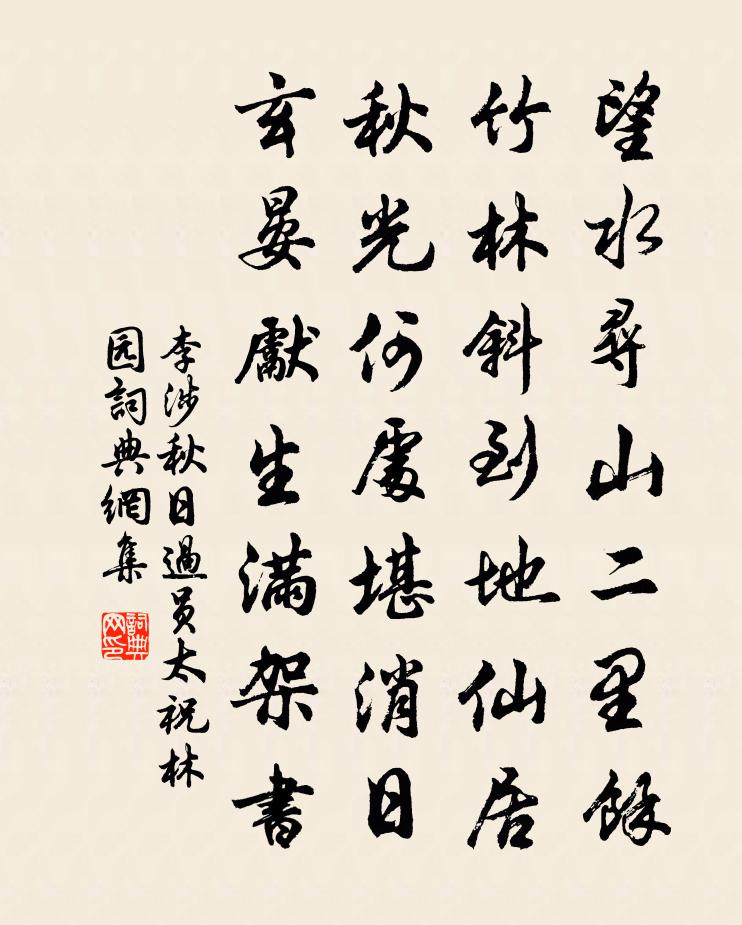 望水尋山二里餘
竹林斜到地仙居
秋光何處堪消日
玄晏獻生滿架書
李涉秋日過员太祝林
园詞典網集
詞典网印